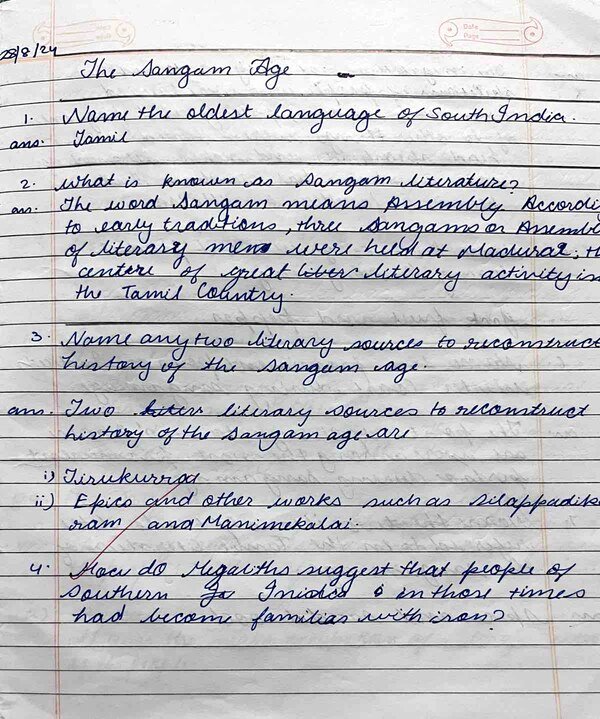 Date
Page
28/8/24
The Sangam Age
1. Name the oldest language of South India.
ans. Tamil
2. What is known as Sangam literature?
an. The word Sangam means Assembly Accordi
to early traditions, three Sangams or Assemb
of literary men were held at Madurai; th
centere of great literary activity in
the Tamil Country.
3. Name any two literary sources to reconstruc
history of the Sangam age.
ans. Two literary sources to reconstruct
history of the Sangam age are
i) Tirukurral
ii) Epics and other works such as Silappadik
ram and Manimekalai.
4. How do Megaliths suggest that people of
Southern India in those times
had become familias with iron?